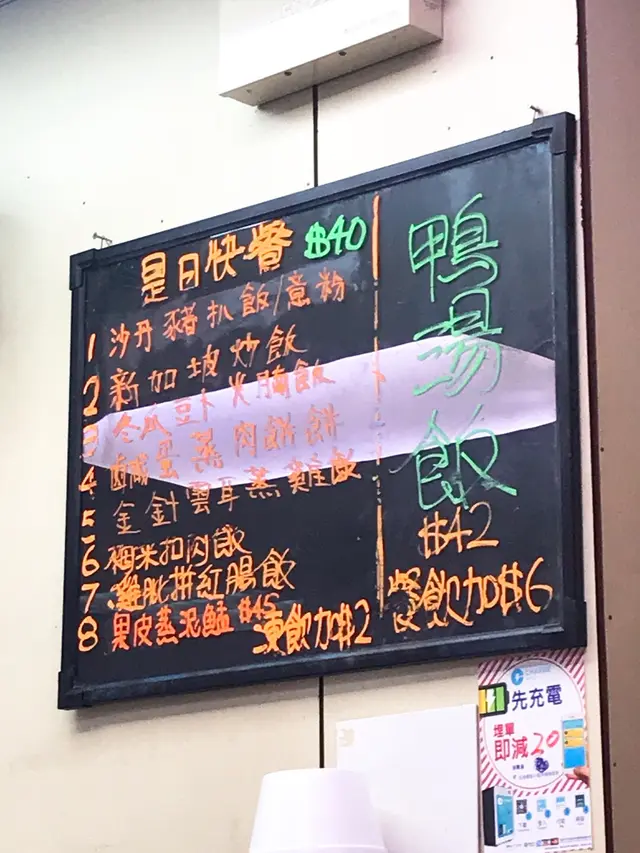 是日快餐 $40
1 沙丹豬扒飯/意粉
2 新加坡炒飯
3 冬瓜豆卜火腩飯
4 鹹蛋蒸肉餅飯
5 金針雲耳蒸雞飯
6 梅菜扣肉飯
7 雞髀拼紅腸飯
8 果皮蒸泥鯭 $45
凍飲加$2
鴨湯飯
$42
餐飲加$6
先充電
埋單
即減20